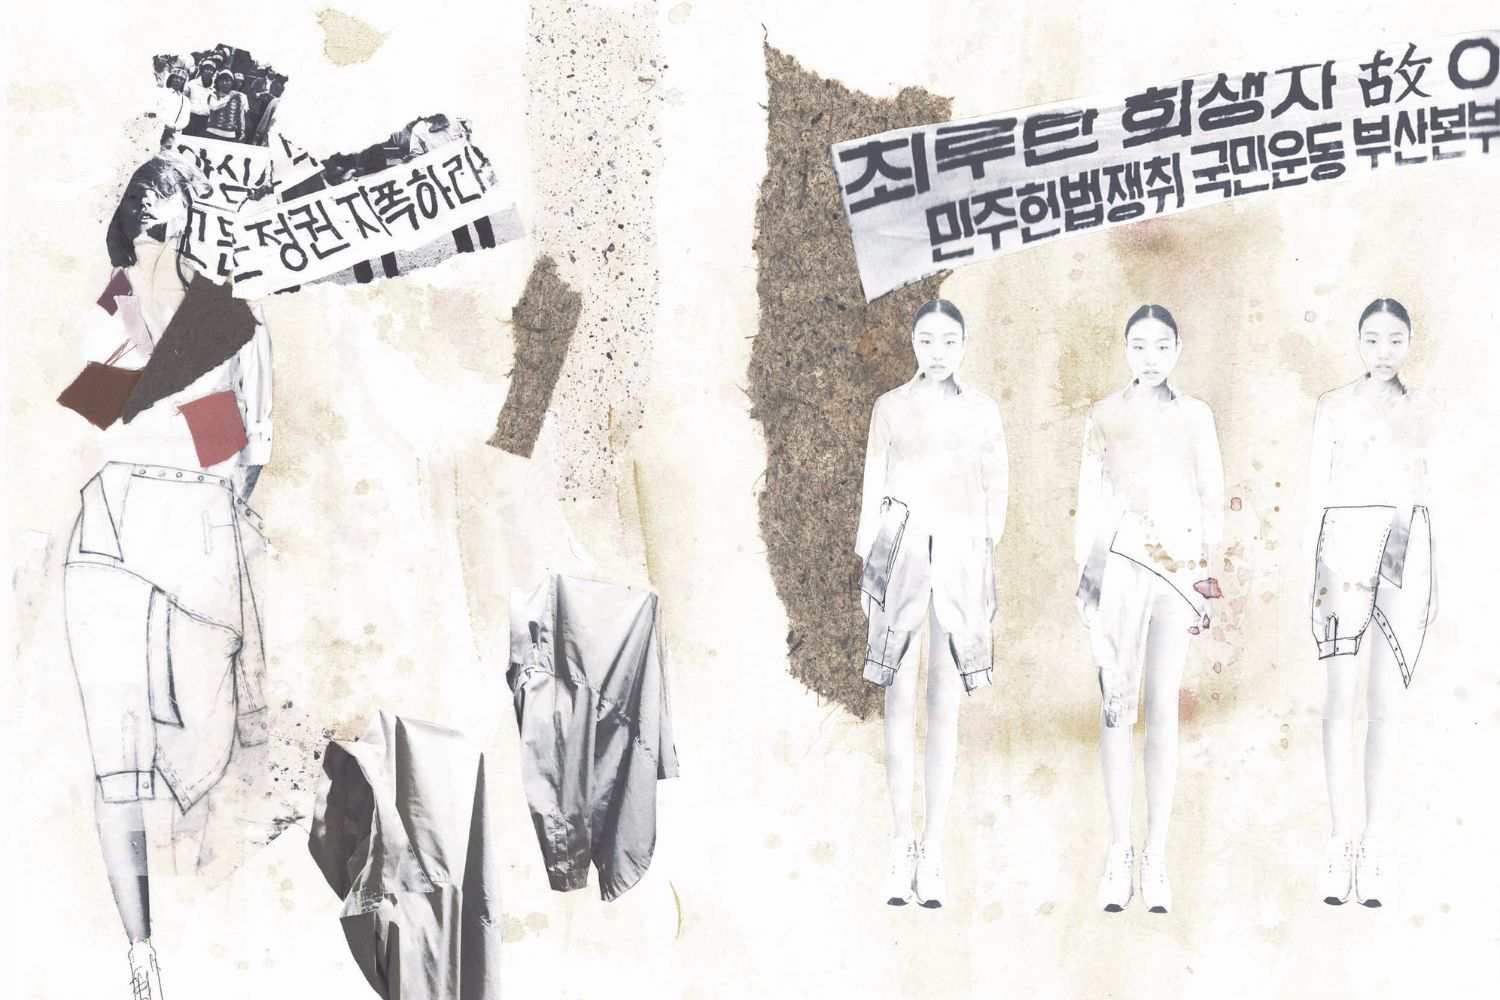 정권 지폭하라
최루탄 희생자 故
민주헌법쟁취 국민운동 부산본부